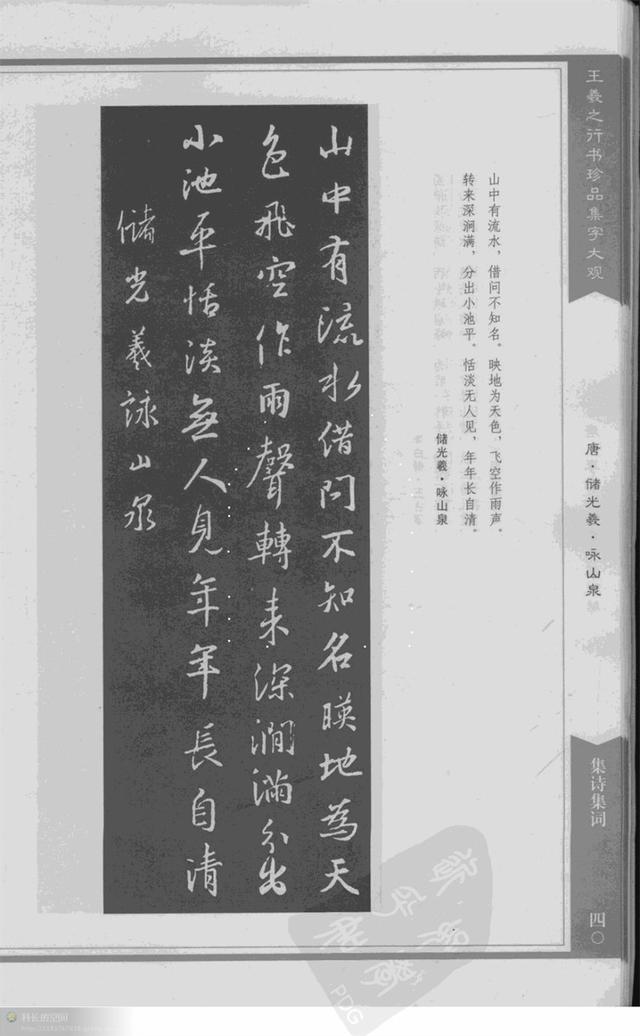 王羲之行书珍品集字大观
唐·储光羲·咏山泉
集诗集词
四〇
山中有流水，借问不知名。映地为天色，飞空作雨声。
转来深涧满，分出小池平。恬淡无人见，年年长自清。
储光羲·咏山泉
山中有流水借问不知名暎地為天
色飛空作雨聲轉来深澗滿分出
小池平恬淡無人見年年長自清
儲光羲詠山泉
PDG
科长的空间